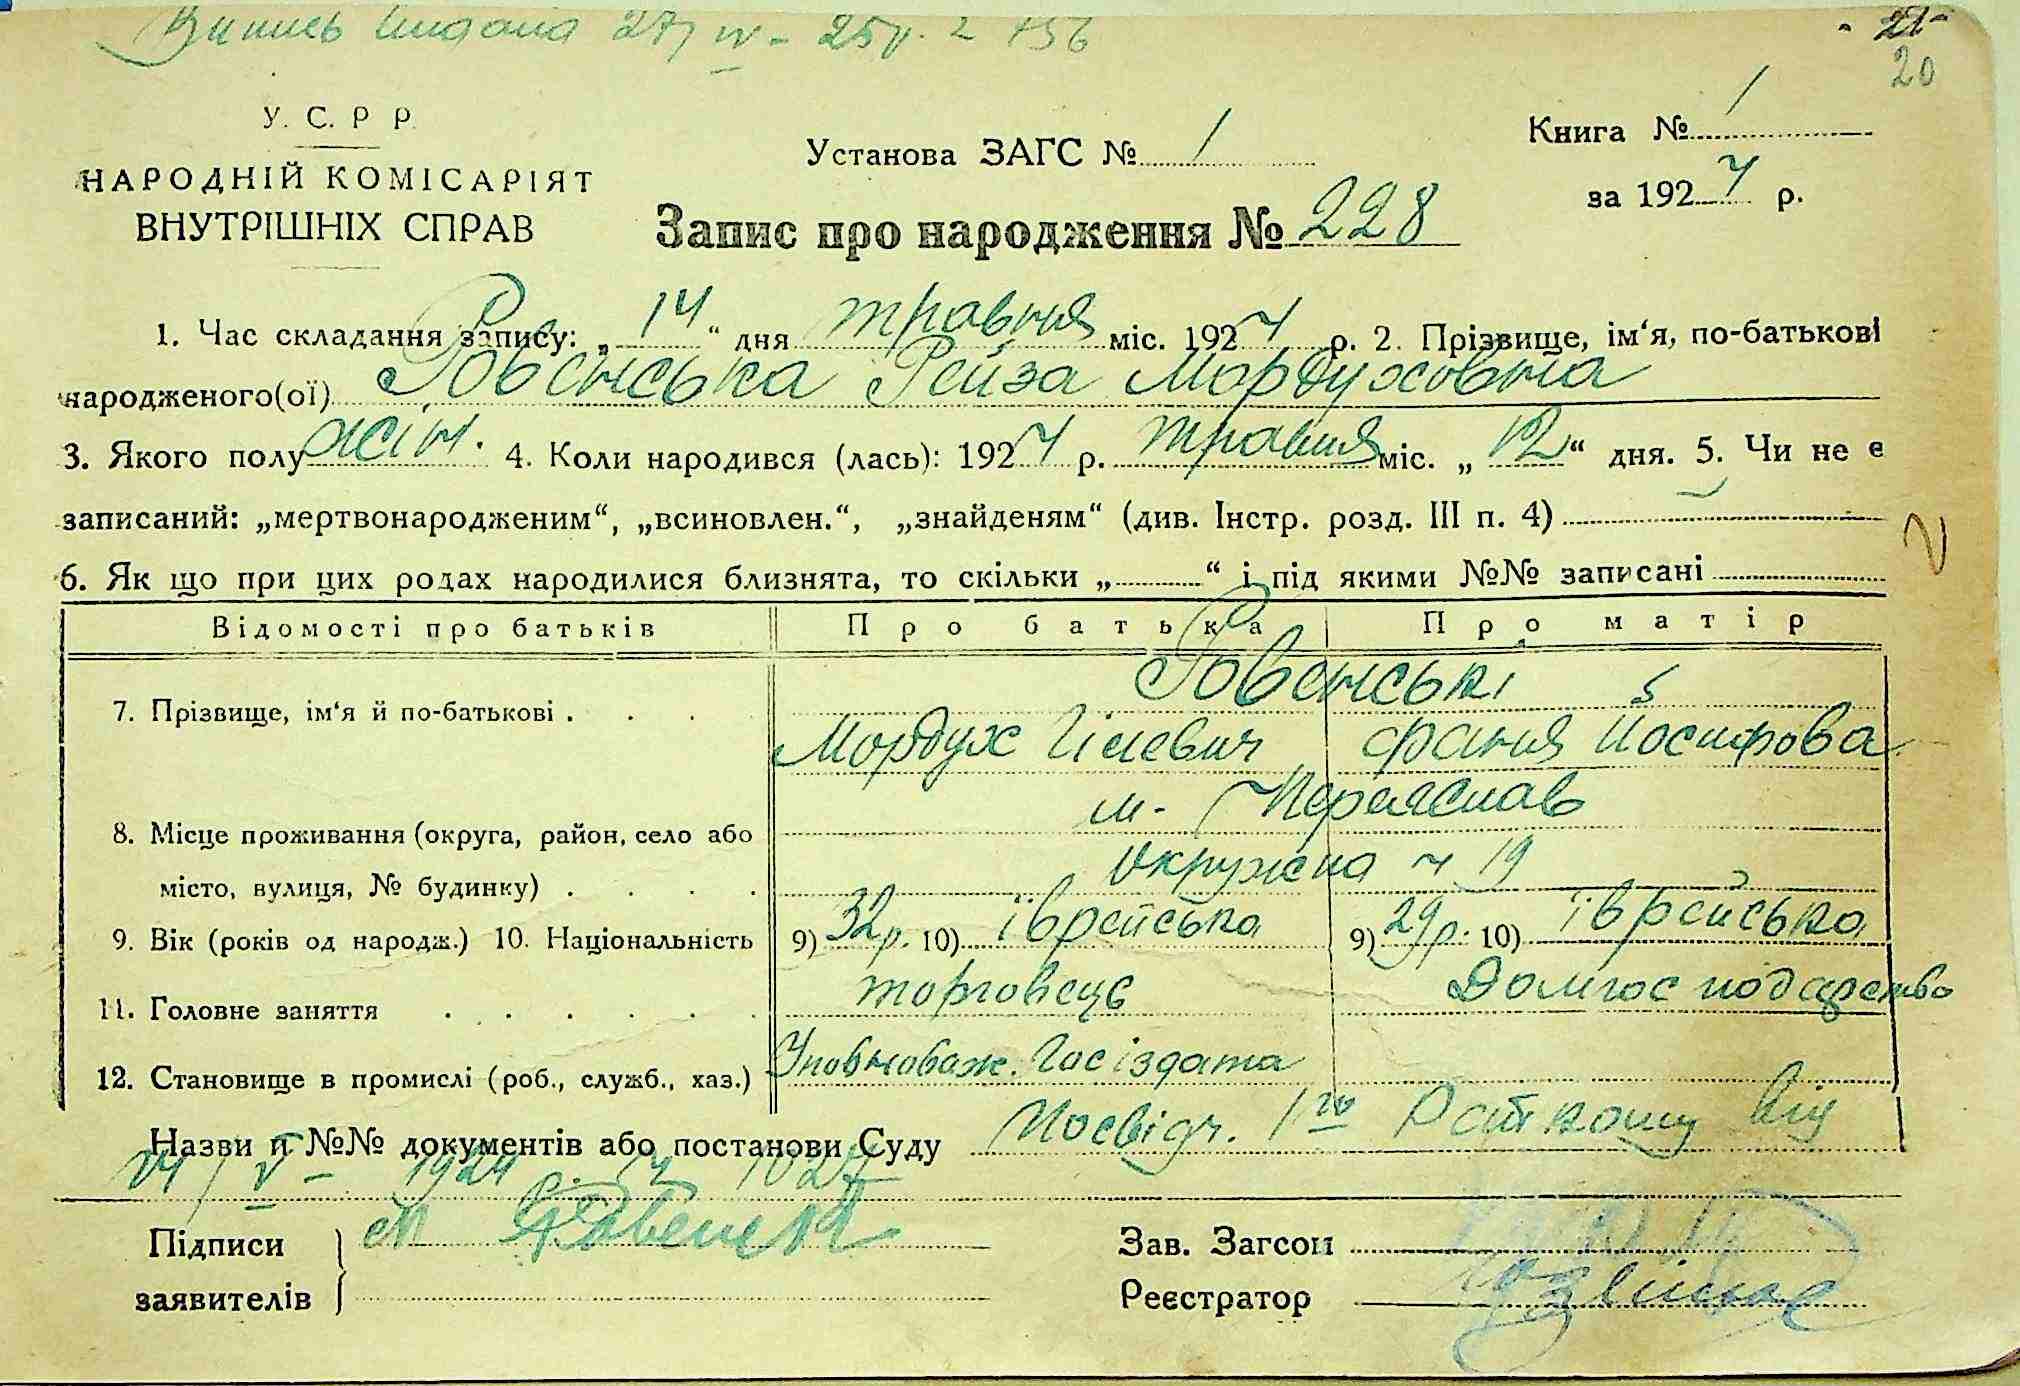 Випись видана 27/IV - 25 р. 756
- 21 -
20
У. С. Р Р.
НАРОДНІЙ КОМІСАРІЯТ
ВНУТРІШНІХ СПРАВ
Установа ЗАГС № 1
Книга № 1
за 1924 р.
Запис про народження № 228
1. Час складання запису: „14“ дня травня міс. 1924 р. 2. Прізвище, ім‘я, по-батькові
народженого(ої) Ровенська Рейза Мордуховна
3. Якого полу жін. 4. Коли народився (лась): 1924 р. травня міс. „12“ дня. 5. Чи не є
записаний: „мертвонародженим“, „всиновлен.“, „знайденям“ (див. Інстр. розд. III п. 4)
6. Як що при цих родах народилися близнята, то скільки „ “ і під якими №№ записані
Відомості про батьків Про батька Про матір
Ровенські
7. Прізвище, ім‘я й по-батькові . . . .
Мордух Гілевич Фаня Йосифова
м. Переяслав
8. Місце проживання (округа, район, село або
місто, вулиця, № будинку) . . . .
Окружна ч 19
9. Вік (років од народж.) 10. Національність 9) 32 р. 10) їврейська 9) 29 р. 10) їврейська
11. Головне заняття . . . . . . торговець Домгосподарство
12. Становище в промислі (роб., служб., хаз.) Уповноваж. Госіздата
Назви й №№ документів або постанови Суду Посвідч. 1го Райкому від
14/V - 1924 р. ч 1027
Підписи
заявителів
М Ровенск
Зав. Загсом
Реєстратор